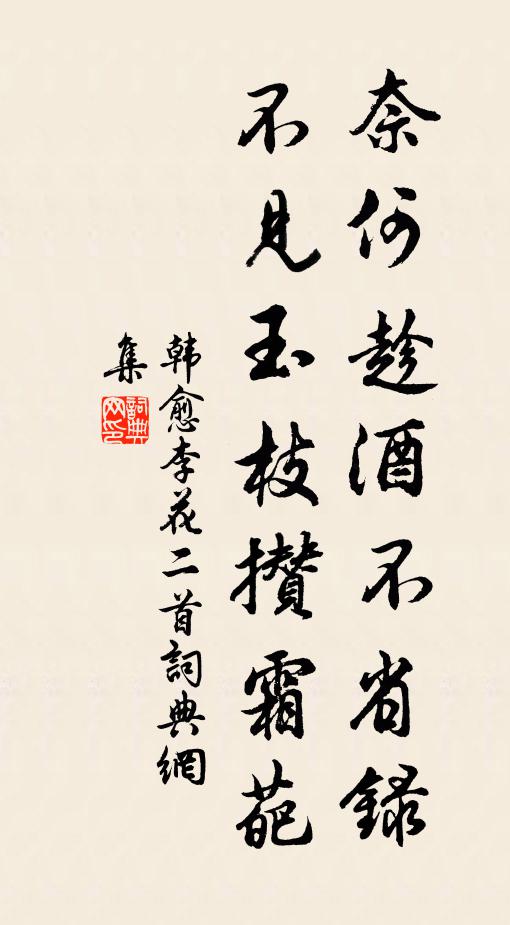 奈何趁酒不省錄
不見玉枝攢霜葩
韓愈李花二首詞典網
集
詞典
网印